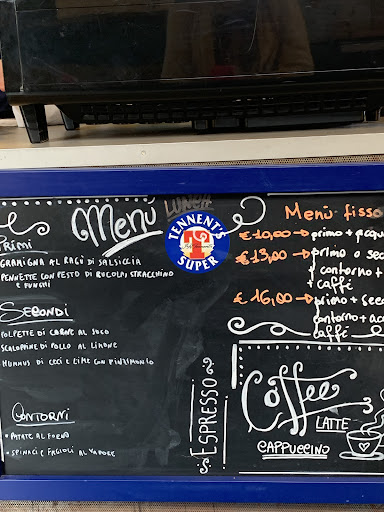 Menù
LUNCH
TENNENT'S
SUPER
PRIMI
GRAMIGNA AL RAGÙ DI SALSICCIA
PENNETTE CON PESTO DI RUCOLA, STRACCHINO
E FUNGHI
SECONDI
POLPETTE DI CARNE AL SUGO
SCALOPPINE DI POLLO AL LIMONE
HUMMUS DI CECI E LIME CON PINZIMONIO
CONTORNI
• PATATE AL FORNO
• SPINACI E FAGIOLI AL VAPORE
Menù fisso
€ 10,00 → primo + acqu
€ 13,00 → primo o se
+ contorno +
+ caffé
€ 16,00 → primo + sec
contorno + ac
caffé
ESPRESSO
Coffee
LATTE
CAPPUCCINO